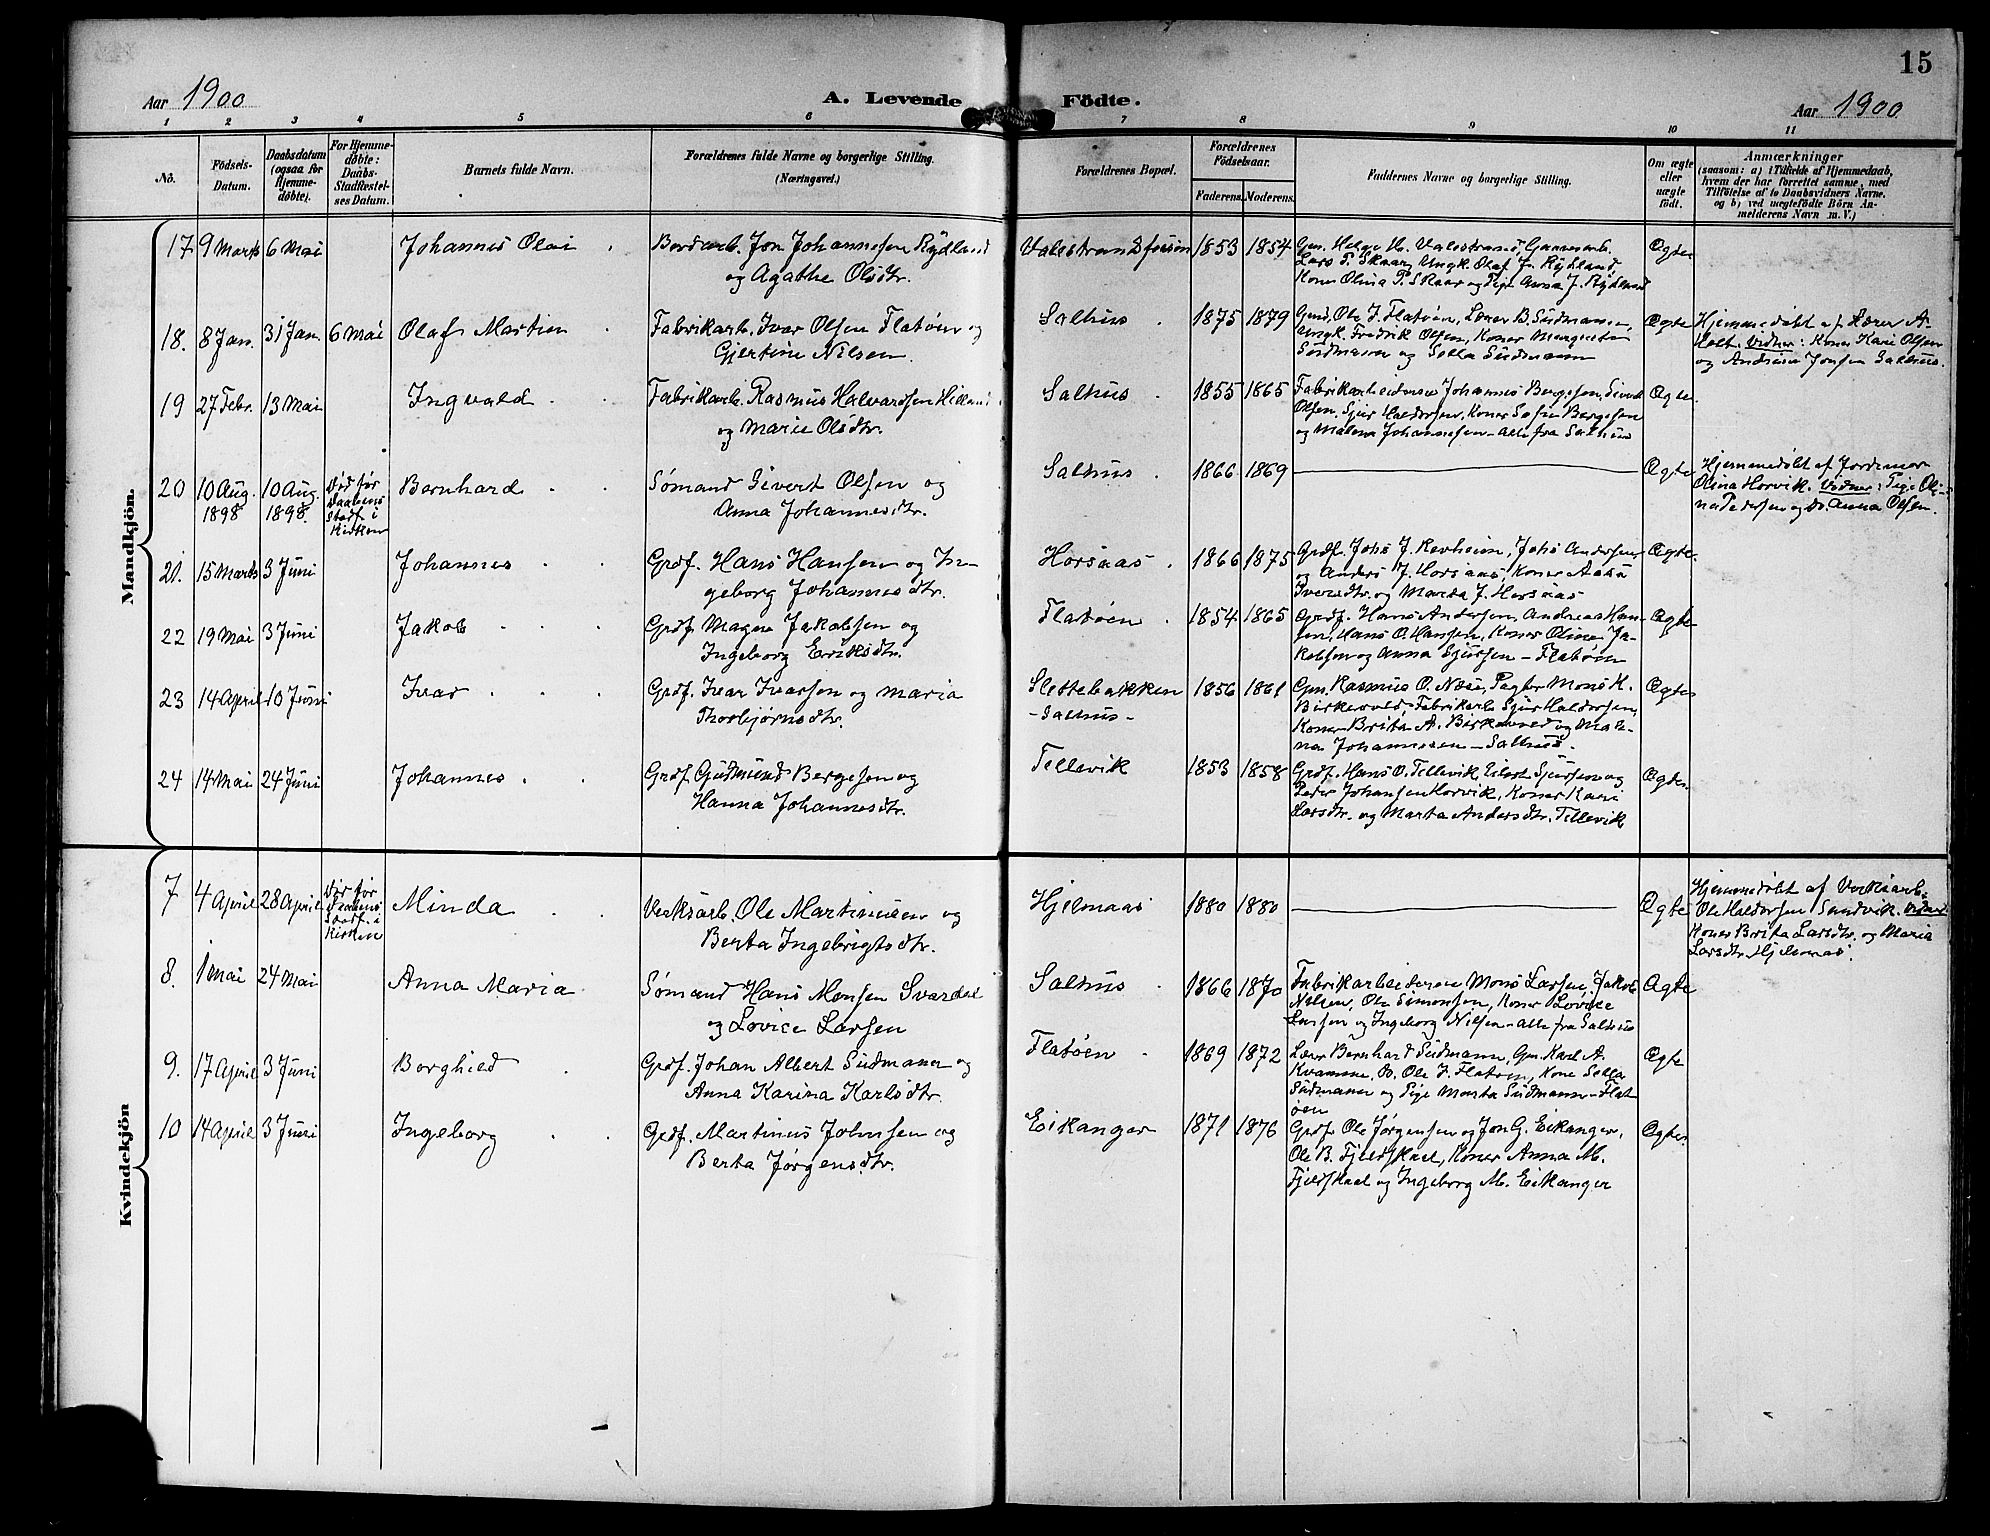 15
Aar 1900
A. Levende Födte.
Aar 1900
1 2 3 4 5 6 7 8 9 10 11
No.
Födsels-
Datum.
Daabsdatum
(ogsaa for
Hjemme-
døbte).
For Hjemme-
døbte:
Daabs-
Stadfæstel-
ses Datum.
Barnets fulde Navn.
Forældrenes fulde Navne og borgerlige Stilling.
(Næringsvei.)
Forældrenes Bopæl.
Forældrenes
Födselsaar.
Faderens. Moderens.
Faddernes Navne og borgerlige Stilling.
Om ægte
eller
uægte
født.
Anmærkninger
(saasom: a) i Tilfælde af Hjemmedaab,
hvem der har forrettet samme, med
Tilföielse af to Daabsvidners Navne.
og b) ved uægtefödte Börn An-
melderens Navn m. V.)
Mandkjön.
17 9 Marts 6 Mai Johannes Olai
Bordarb. Jon Johannesen Rydland
og Agathe Olsdtr.
Valestrandsfossen 1853 1854
Gm. Helge M. Valestrand, Gaardarb.
Lars T. Skaar, Ungk. Olaf J. Rydland,
Koner Olina P. Skaar og Pige Anna J. Rydland
Ægte
18. 8 Jan. 31 Jan. 6 Mai Olaf Martin
Fabrikarb. Ivar Olsen Flatøen og
Gjertine Nilsen.
Salhus 1875 1879
Gmd. Ole J. Flatøen, Lærer B. Südmann,
Ungk. Fredrik Olsen, Koner Margrethe
Südmann og Sella Südmann
Ægte
Hjemmedøbt af Lærer A.
Holt. Vidner: Kone Kari Olsen
og Andrea Jonsen Salhus.
19 27 Febr. 13 Mai Ingvald
Fabrikarb. Rasmus Halvardsen Hilland
og Marie Olsdtr.
Salhus 1855 1865
Fabrikarbeiderne Johannes Bergesen, Sivert
Olsen, Sjur Haldorsen, Koner Sofie Bergesen
og Malena Johannesen – alle fra Salhus
Ægte
20 10 Aug. 1898 10 Aug. 1898.
Død før
Daabens
Stadf. i
Kirken
Bernhard
Sømand Sivert Olsen og
Anna Johannesdtr.
Salhus 1866 1869
Ægte
Hjemmedøbt af Jordemor
Olina Horvik. Vidner: Pige Oli-
na Pedersen og do. Anna Olsen.
21. 15 Marts 3 Juni Johannes
Grdf. Hans Hansen og In-
geborg Johannesdtr.
Horsaas 1866 1875
Grdf. Johs J. Revheim, Johs Andersen,
og Anders J. Horsaas, Koner Aasa
Iversdtr. og Marta J. Horsaas
Ægte
22 19 Mai 3 Juni Jakob
Grdf. Magne Jakobsen og
Ingeborg Eriksdtr.
Flatøen 1854 1865
Grdf. Hans Andersen, Andreas Han-
sen, Hans O. Hansen, Koner Oline Ja-
kobsen og Anna Sjursen – Flatøen
Ægte
23 14 April 10 Juni Ivar
Grdf. Ivar Ivarsen og Maria
Thorbjørnsdtr.
Slettebakken
– Salhus –
1856 1861
Gm. Rasmus O. Næss, Pagter Mons K.
Birkeved, Fabrikarb. Sjur Haldorsen,
Koner Brita A. Birkeved og Male-
na Johannesen – Salhus.
Ægte
24 14 Mai 24 Juni Johannes
Grdf. Gudmund Bergesen og
Hanna Johannesdtr.
Tellevik 1853 1858
Grdf. Hans O. Tellevik, Eilert Sjursen og
Peder Johansen Horvik, Koner Kari
Larsdtr. og Marta Andersdtr. Tellevik
Ægte
Kvindekjön
7 4 April 28 April
Død før
Daabens
Stadf. i
Kirken
Minda
Verksarb. Ole Martinusen og
Berta Ingebrigtsdtr.
Hjelmaas 1880 1880
Ægte
Hjemmedøbt af Verksarb.
Ole Haldorsen Sandvik. Vidner
Koner Brita Larsdtr. og Maria
Larsdtr. Hjelmaas.
8. 1 Mai 24 Mai Anna Maria
Sømand Hans Monsen Svardal
og Lovise Larsen
Salhus 1866 1870
Fabrikarbeiderne Mons Larsen, Jakob
Nilsen, Ole Simonsen, Koner Lovise
Larsen og Ingeborg Nilsen – alle fra Salhus
Ægte
9. 17 April 3 Juni Borghild
Grdf. Johan Albert Südmann og
Anna Karina Karlsdtr.
Flatøen 1869 1872
Lærer Bernhard Südmann, Gm. Karl A.
Kvamme, do. Ole J. Flatøen, Kone Sella
Südmann og Pige Marta Südmann – Flat
øen
Ægte
10 14 April 3 Juni Ingeborg
Grdf. Martinus Johnsen og
Berta Jørgensdtr.
Eikanger 1871 1876
Grdf. Ole Jørgensen og Jon G. Eikanger,
Ole B. Fjeldskaal, Koner Anna M.
Fjeldskaal og Ingeborg M. Eikanger
Ægte